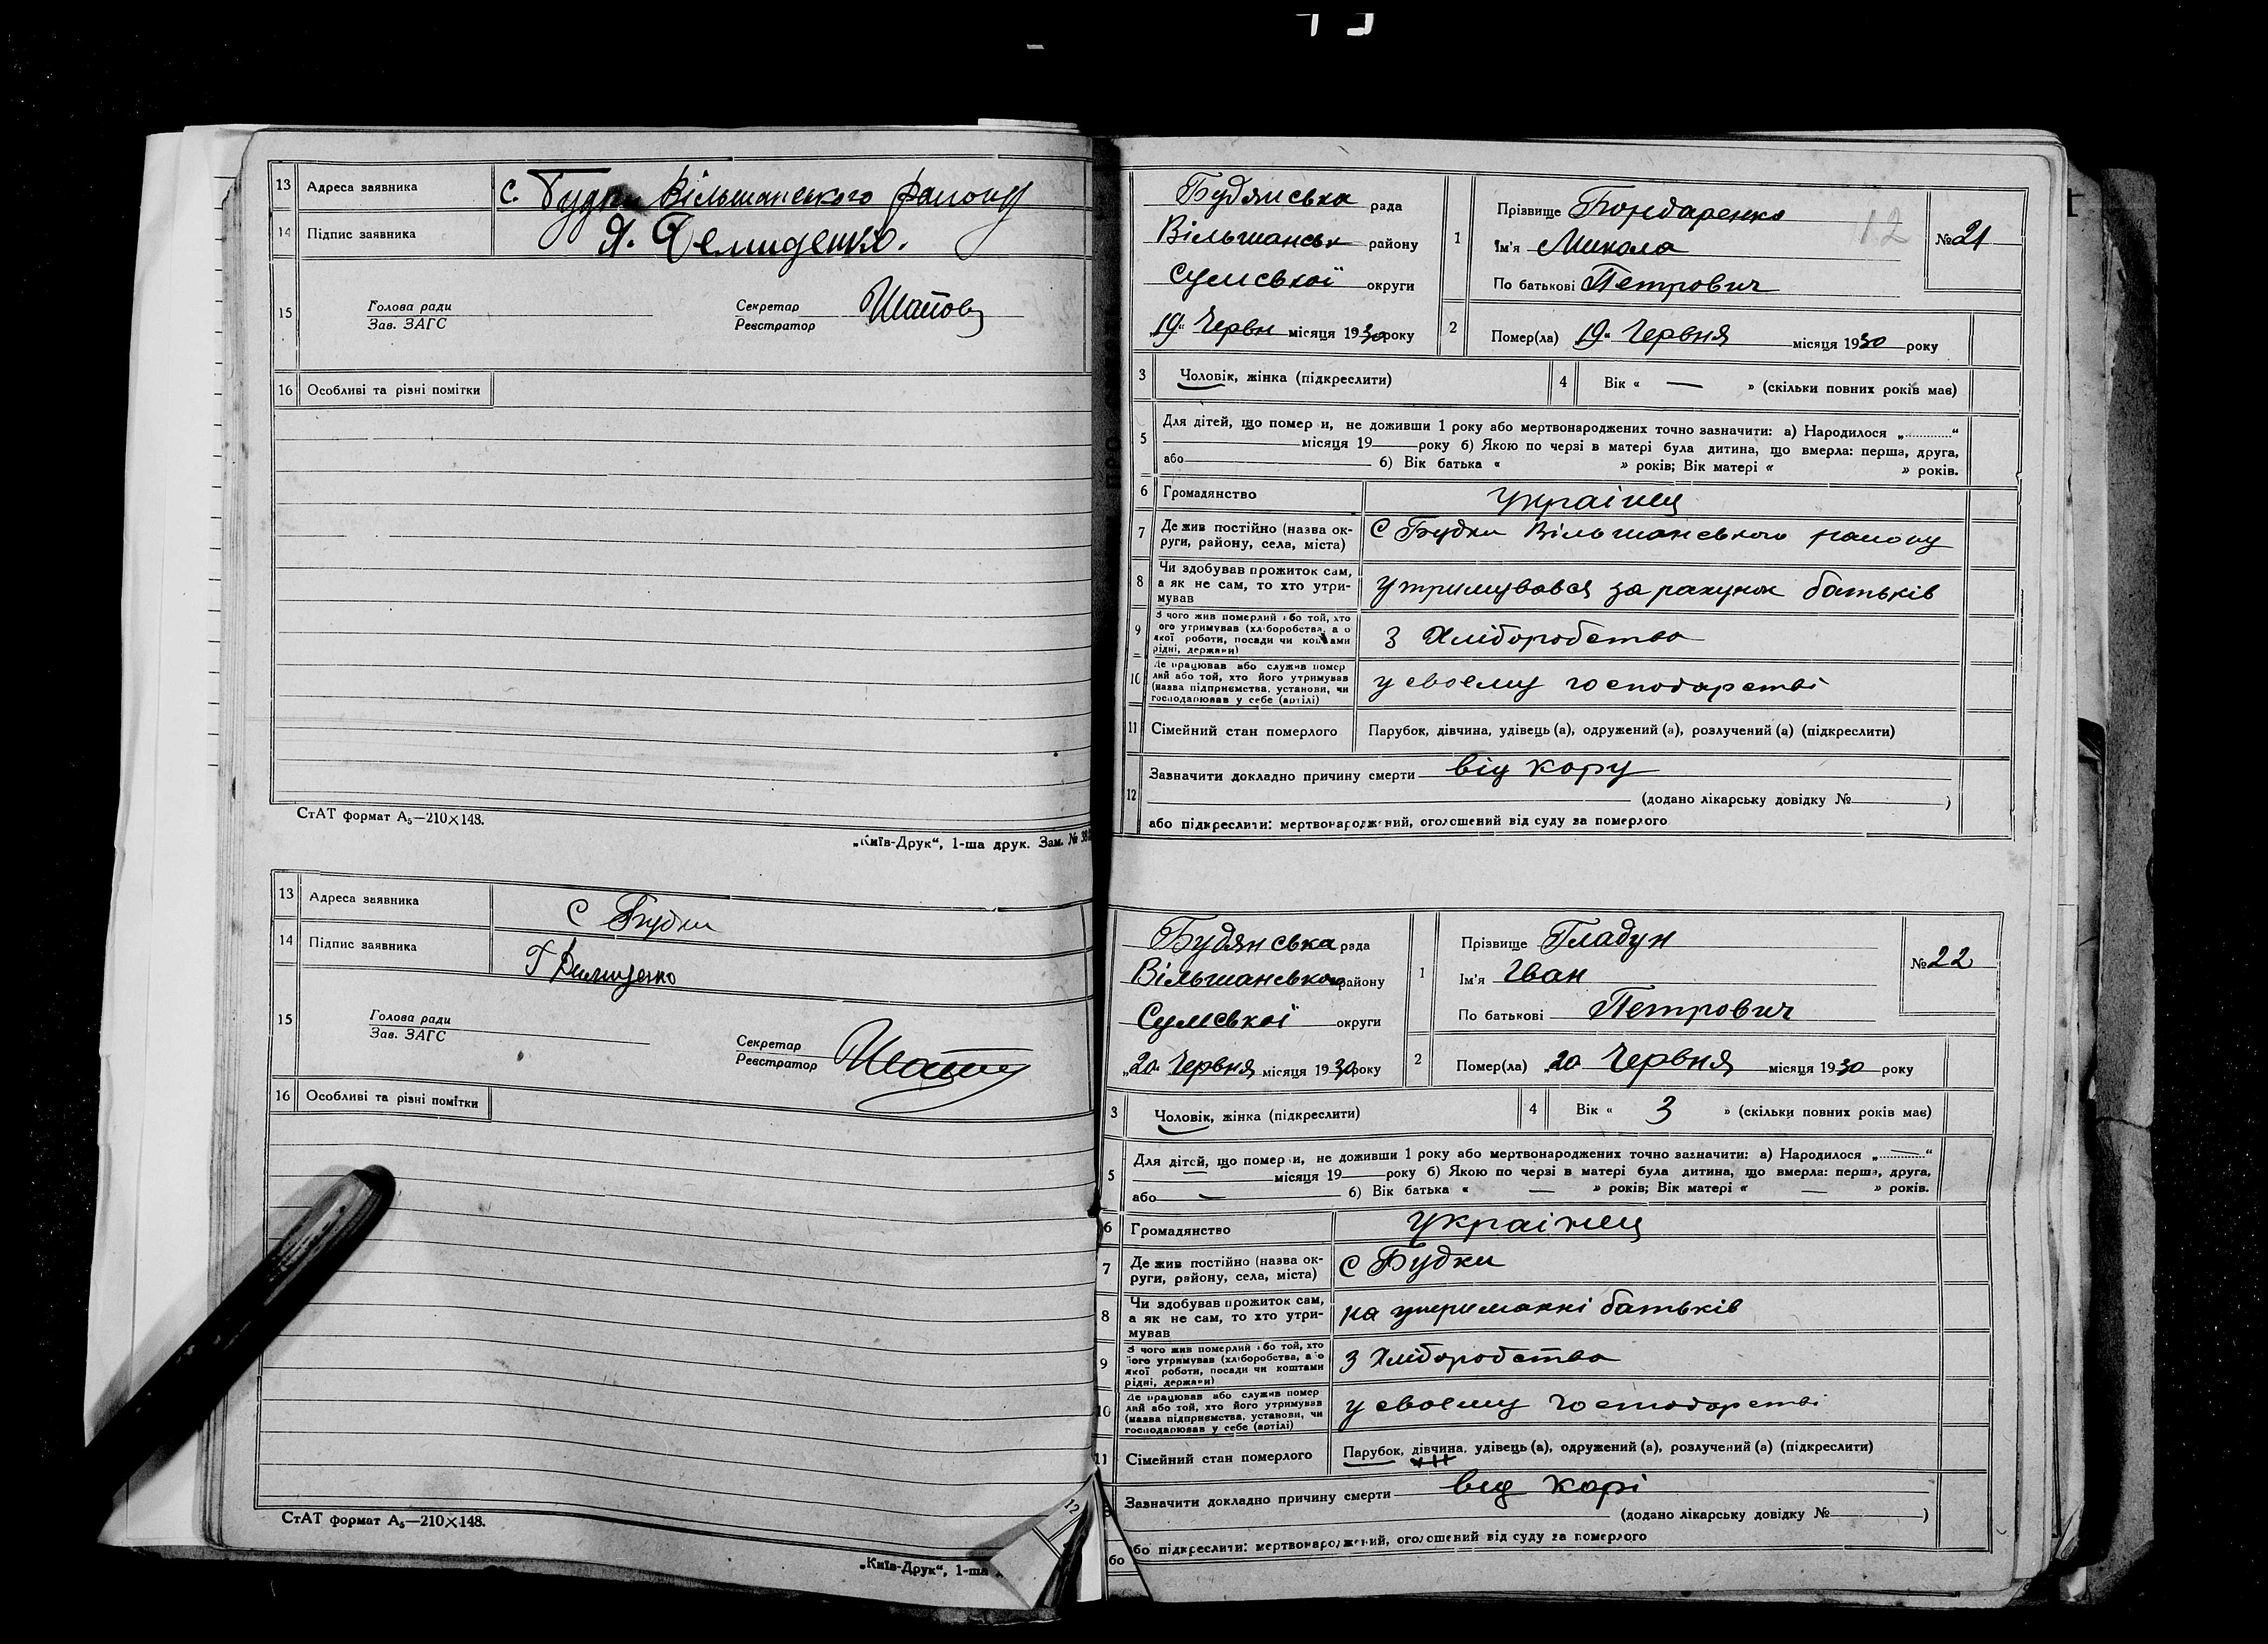 13 Адреса заявника с. Будки Вільшанського району
14 Підпис заявника Я. Демиденко.
15 Голова ради
Зав. ЗАГС
Секретар
Реєстратор
16 Особливі та різні помітки
СтАТ формат А5—210×148.
„Київ-Друк“, 1-ша друк. Зам. №
13 Адреса заявника С Будки
14 Підпис заявника Г Демиденко
15 Голова ради
Зав. ЗАГС
Секретар
Реєстратор
16 Особливі та різні помітки
СтАТ формат А5—210×148.
„Київ-Друк“, 1-ша
12
Будянська рада
Вільшанськ району
Сумської округи
„19“ Червн місяця 1930 року
1 Прізвище Бондаренко
Ім'я Микола
По батькові Петрович
12
№ 21
2 Помер(ла) 19 Червня місяця 1930 року
3 Чоловік, жінка (підкреслити)
4 Вік « — » (скільки повних років має)
5 Для дітей, що померли, не доживши 1 року або мертвонароджених точно зазначити: а) Народилося „............“
місяця 19 року б) Якою по черзі в матері була дитина, що вмерла: перша, друга,
або б) Вік батька « » років; Вік матері « » років.
6 Громадянство українец
7 Де жив постійно (назва ок-
руги, району, села, міста) С Будки Вільшанського району
8 Чи здобував прожиток сам,
а як не сам, то хто утри-
мував утримувався за рахунок батьків
9 З чого жив померлий або той, хто
його утримував (хліборобства, або
якої роботи, посади чи коштами
рідні, держави) З Хліборобства
10 Де працював або служив помер
лий або той, хто його утримував
(назва підприємства, установи, чи
господарював у себе (артілі) у своєму господарстві
11 Сімейний стан померлого Парубок, дівчина, удівець (а), одружений (а), розлучений (а) (підкреслити)
12 Зазначити докладно причину смерти від кору
(додано лікарську довідку № )
або підкреслити: мертвонароджений, оголошений від суду за померлого
Будянська рада
Вільшанського району
Сумської округи
„20“ Червня місяця 1930 року
1 Прізвище Гладун
Ім'я Іван
По батькові Петрович
№ 22
2 Помер(ла) „20 Червня місяця 1930 року
3 Чоловік, жінка (підкреслити)
4 Вік « 3 » (скільки повних років має)
5 Для дітей, що померли, не доживши 1 року або мертвонароджених точно зазначити: а) Народилося „............“
місяця 19 року б) Якою по черзі в матері була дитина, що вмерла: перша, друга,
або — б) Вік батька « — » років; Вік матері « — » років.
6 Громадянство українец
7 Де жив постійно (назва ок-
руги, району, села, міста) С Будки
8 Чи здобував прожиток сам,
а як не сам, то хто утри-
мував на утриманні батьків
9 З чого жив померлий або той, хто
його утримував (хліборобства, або
якої роботи, посади чи коштами
рідні, держави) З Хліборобства
10 Де працював або служив помер
лий або той, хто його утримував
(назва підприємства, установи, чи
господарював у себе (артілі) у своєму господарстві
11 Сімейний стан померлого Парубок, дівчина, удівець (а), одружений (а), розлучений (а) (підкреслити)
Зазначити докладно причину смерти від корі
(додано лікарську довідку № )
бо підкреслити: мертвонароджений, оголошений від суду за померлого
бо